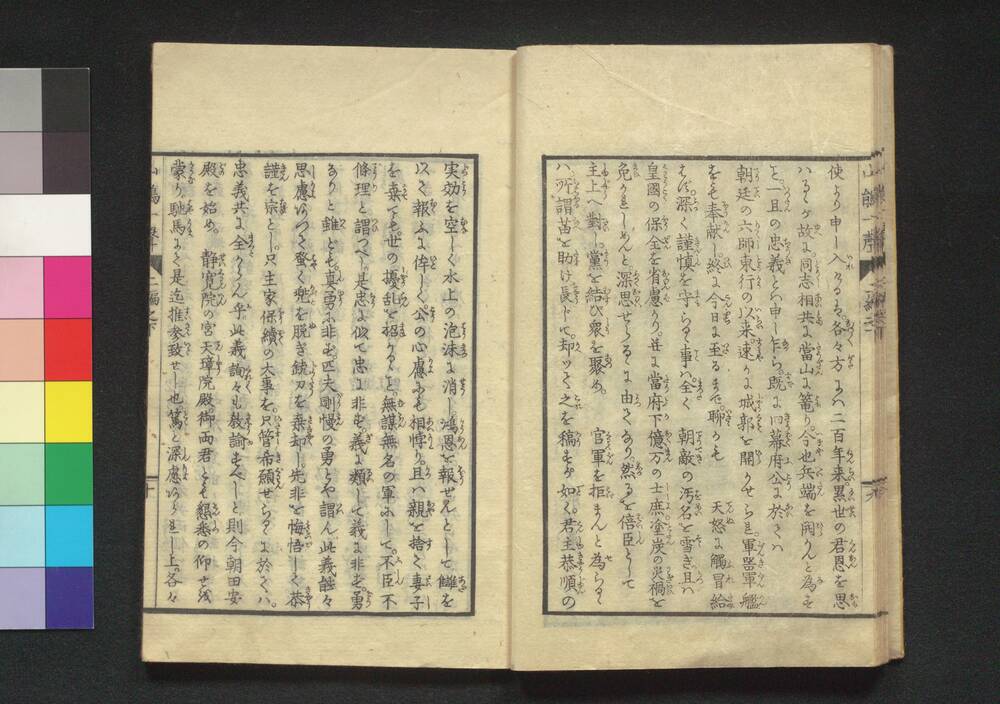 使より申し入るゝる。各々方には二百年来累世の君恩を思
はるゝが故に。同志相共に當山に篭り。今也兵端を開かんと為す
こと一旦の忠義とは申し乍ら。既に幕府公に於ては
朝廷の六師東行の以来。速かに城郭を開かせられ。軍器軍艦
をも奉献し。終に今日に至るまで。聊かも　天怒に觸冒給
はず。深く謹慎を守らるゝ事は。全く　朝敵の汚名を雪ぎ。且は
皇國の保全を省慮かり。并に當府下億万の士庶塗炭の災禍を
免かれしめんと深思せらるゝに由てなり。然るを倍臣として
主上へ對し。黨を結び衆を聚め。　官軍を拒まんと為らるゝ
は。所謂苗を助け長じて。却つて之を槁すが如く。君主恭順の
実効を空しく水上の泡沫に消し。鴻恩を報ぜんとして讎を
以て報ふに侔しく。公の心慮にも相悖り。且は親を捨て妻子
を棄ても。世の擾乱を招かること。無謀無名の軍にして。不臣不
條理と謂つべし。是忠に似て忠に非ず。義に類して義に非ず。勇
ありと雖ども。真勇に非ず。匹夫剛慢の勇とや謂ん。此義能々
思慮めつて。蚤く兜を脱ぎ銃刀を棄却し。先非を悔悟して恭
謹を宗とし。只主家保續の大事を。只管希願せらるゝに於ては。
忠義共に全からん乎。此義詢々も教諭すべしと。則今朝田安
殿を始め。　静寛院の宮天璋院殿。御両君とも懇悉の仰せを
蒙り。馳馬にて是迄推参致せし也。篤と深慮められし上。各々